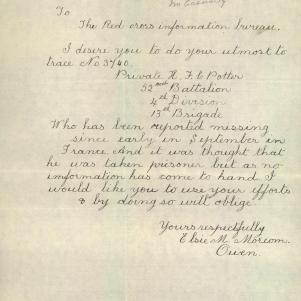 No Casualty
To
The Red cross information bureau.
I desire you to do your utmost to
trace No 3740.
Private H. F. C Potter
52nd Battalion
4th Division
13th Brigade
Who has been reported messing
since early in September in
France. And it was thought that
he was taken prisoner but as no
information has come to hand I
would like you to use your efforts
& by doing so will oblige
Yours respectfully
Elsie M. Morcom.
Owen.